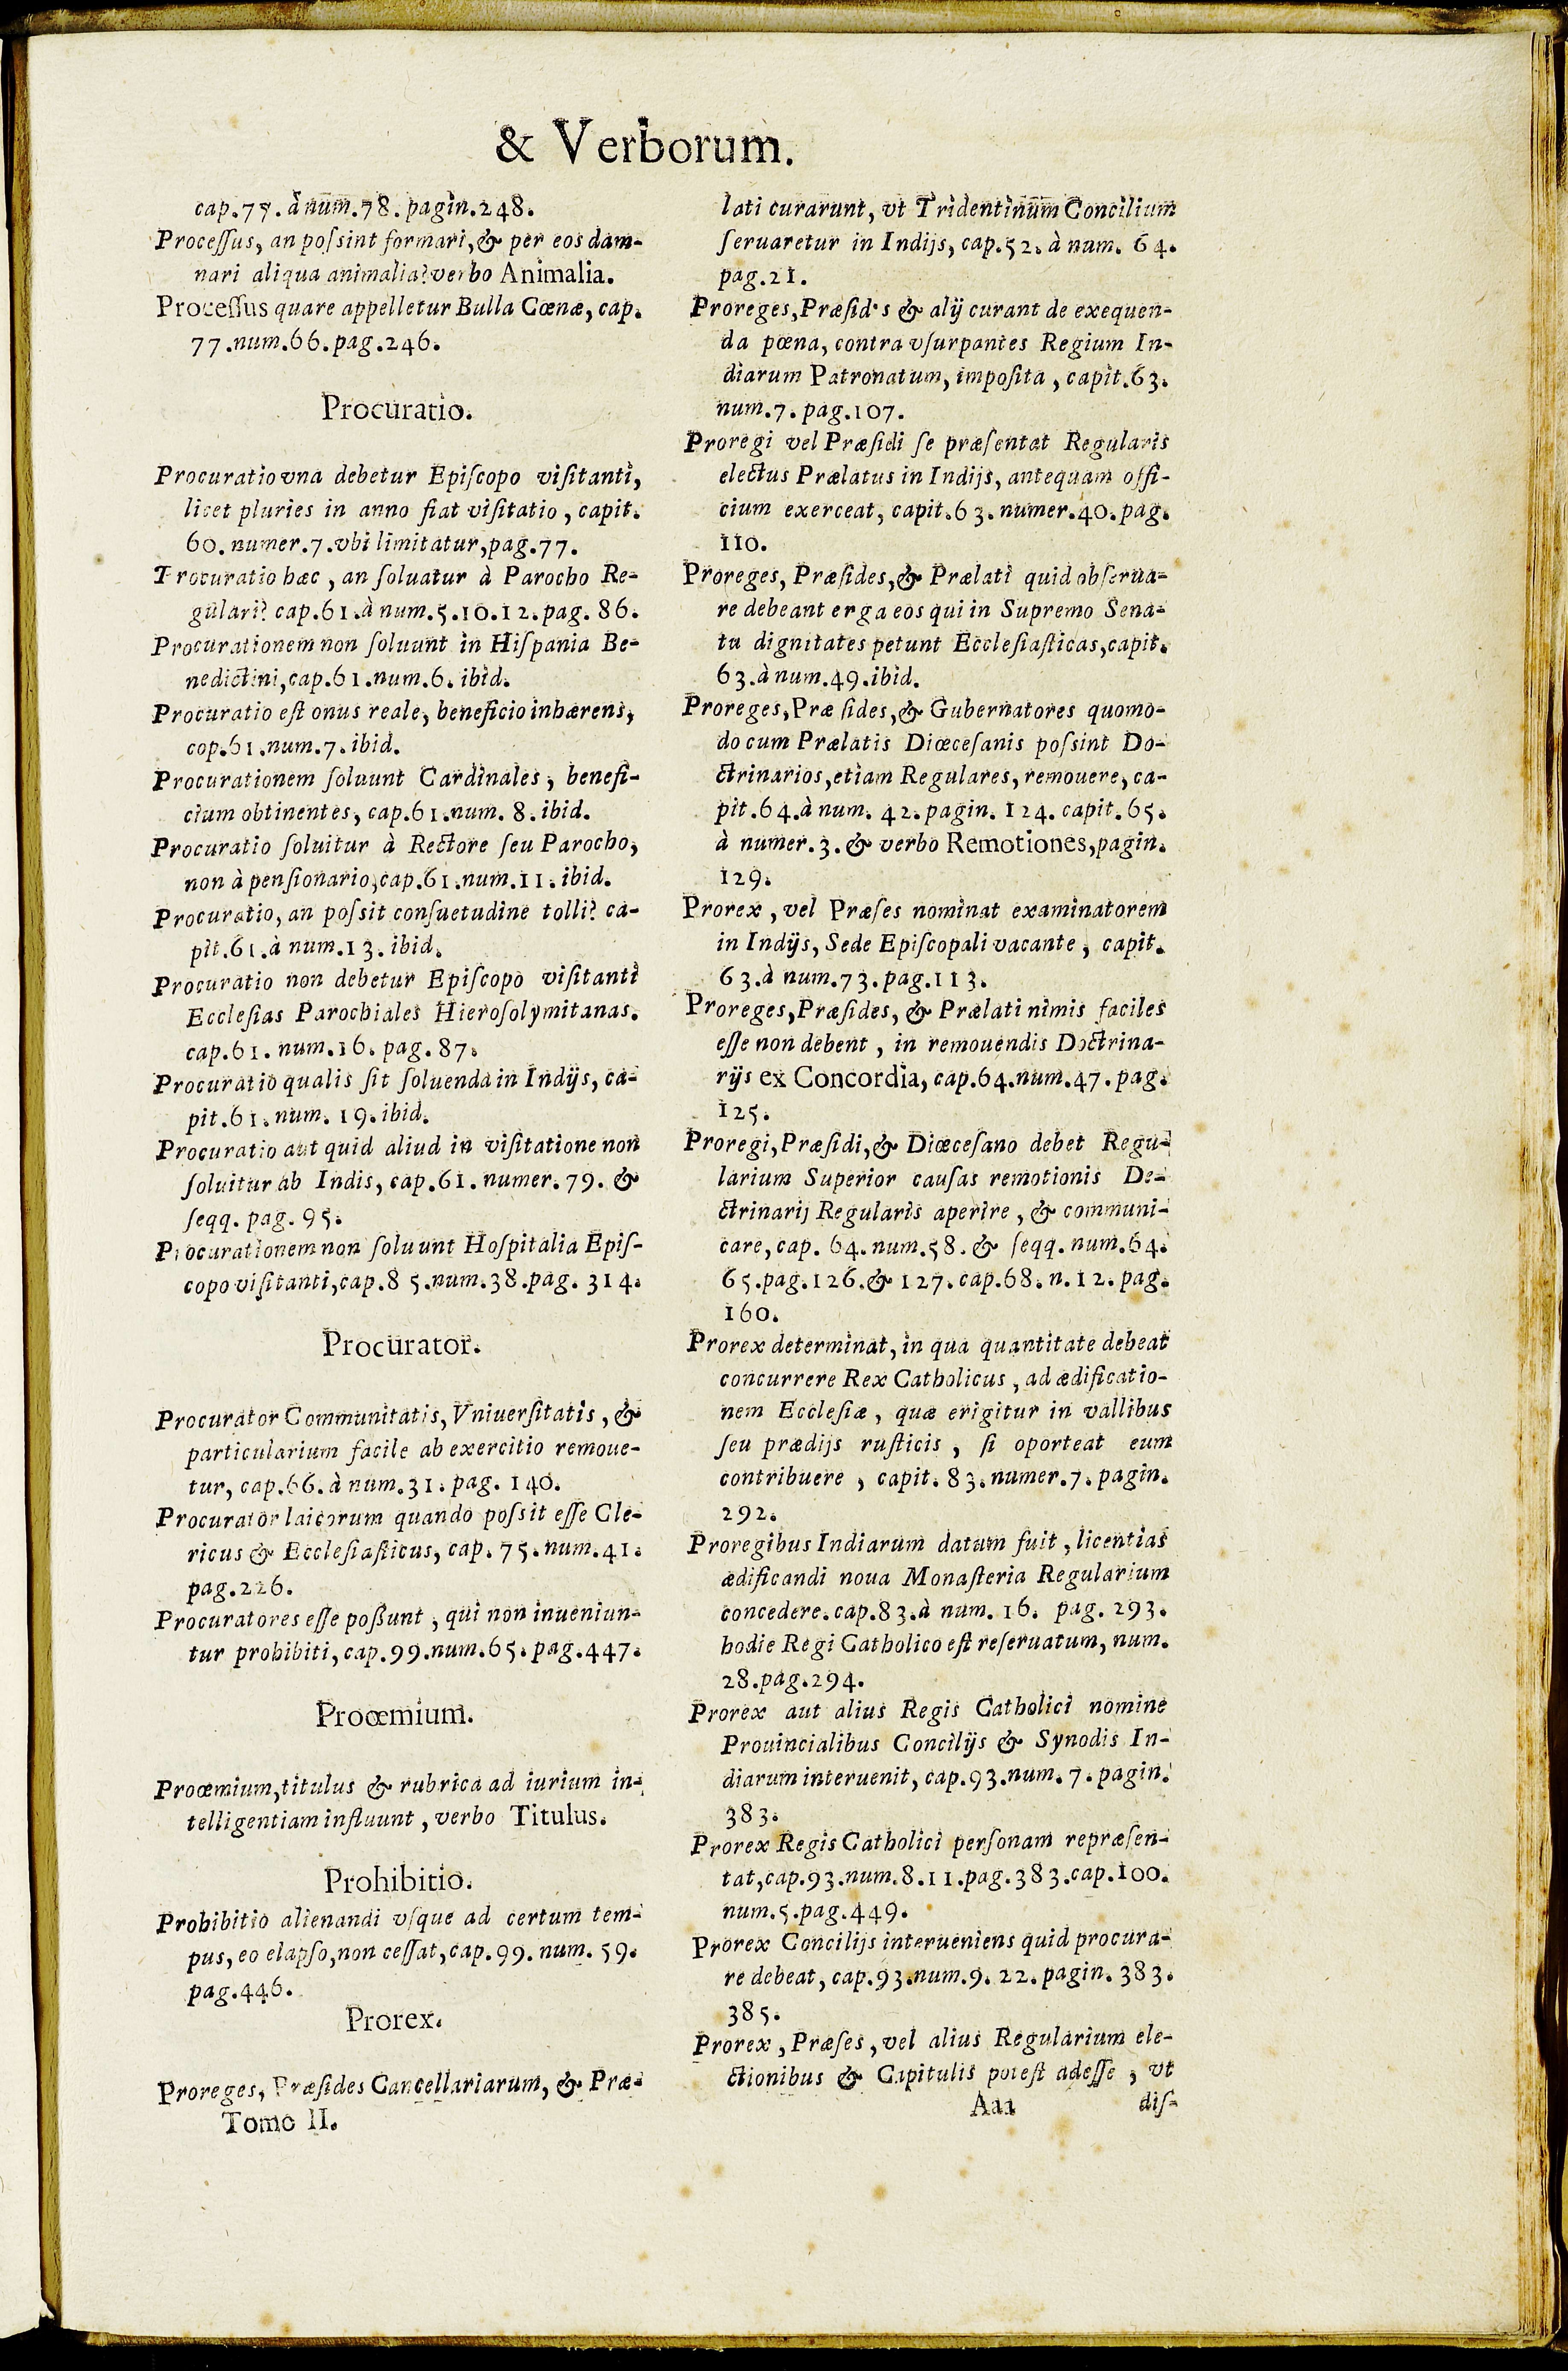 & Verborum.
cap.77. à num.78. pagin.248.
Proceſſus, an poſsint formari, & per eos dam-
nari aliqua animalia? verbo Animalia.
Proceſſus quare appelletur Bulla Cœnæ, cap.
77.num.66.pag.246.
Procuratio.
Procuratio vna debetur Epiſcopo viſitanti,
licet pluries in anno fiat viſitatio, capit.
60. numer.7.vbi limitatur, pag.77.
Procuratio hæc, an ſoluatur à Parocho Re-
gulari? cap.61.à num.5.10.12.pag. 86.
Procurationem non ſoluunt in Hiſpania Be-
nedictini, cap.61.num.6. ibid.
Procuratio eſt onus reale, beneficio inhærens,
cap.61.num.7. ibid.
Procurationem ſoluunt Cardinales, benefi-
cium obtinentes, cap.61.num. 8. ibid.
Procuratio ſoluitur à Rectore ſeu Parocho,
non à penſionario, cap.61.num.11. ibid.
Procuratio, an poſsit conſuetudine tolli? ca-
pit.61.à num.13. ibid.
Procuratio non debetur Epiſcopo viſitanti
Eccleſias Parochiales Hieroſolymitanas.
cap.61. num.16. pag. 87.
Procuratio qualis ſit ſoluenda in Indijs, ca-
pit.61. num. 19. ibid.
Procuratio aut quid aliud in viſitatione non
ſoluitur ab Indis, cap.61. numer.79. &
ſeqq. pag. 95.
Procurationem non ſoluunt Hoſpitalia Epiſ-
copo viſitanti, cap.85.num.38.pag. 314.
Procurator.
Procurator Communitatis, Vniuerſitatis, &
particularium facile ab exercitio remoue-
tur, cap.66. à num.31. pag. 140.
Procurator laicorum quando poſsit eſſe Cle-
ricus & Eccleſiaſticus, cap. 75. num.41.
pag.226.
Procuratores eſſe poßunt, qui non inueniun-
tur prohibiti, cap.99.num.65. pag.447.
Proœmium.
Proœmium, titulus & rubrica ad iurium in-
telligentiam influunt, verbo Titulus.
Prohibitio.
Prohibitio alienandi vſque ad certum tem-
pus, eo elapſo, non ceſſat, cap.99. num. 59.
pag.446.
Prorex.
Proreges, Præſides Cancellariarum, & Præ-
Tomo II.
lati curarunt, vt Tridentinum Concilium
ſeruaretur in Indijs, cap.52. à num. 64.
pag.21.
Proreges, Præſides & alij curant de exequen-
da pœna, contra vſurpantes Regium In-
diarum Patronatum, impoſita, capit.63.
num.7. pag.107.
Proregi vel Præſidi ſe præſentat Regularis
electus Prælatus in Indijs, antequam offi-
cium exerceat, capit.63. numer.40. pag.
110.
Proreges, Præſides, & Prælati quid obſerua-
re debeant erga eos qui in Supremo Sena-
tu dignitates petunt Eccleſiaſticas, capit.
63. à num.49. ibid.
Proreges, Præſides, & Gubernatores quomo-
do cum Prælatis Diœceſanis poſsint Do-
ctrinarios, etiam Regulares, remouere, ca-
pit.64.à num. 42. pagin. 124. capit.65.
à numer.3. & verbo Remotiones, pagin.
129.
Prorex, vel Præſes nominat examinatorem
in Indijs, Sede Epiſcopali vacante, capit.
63.à num.73. pag.113.
Proreges, Præſides, & Prælati nimis faciles
eſſe non debent, in remouendis Doctrina-
rijs ex Concordia, cap.64.num.47. pag.
125.
Proregi, Præſidi, & Diœceſano debet Regu-
larium Superior cauſas remotionis Do-
ctrinarij Regularis aperire, & communi-
care, cap. 64. num.58. & ſeqq. num.64.
65.pag.126.& 127. cap.68. n.12. pag.
160.
Prorex determinat, in qua quantitate debeat
concurrere Rex Catholicus, ad ædificatio-
nem Eccleſiæ, quæ erigitur in vallibus
ſeu prædijs ruſticis, ſi oporteat eum
contribuere, capit. 83. numer.7. pagin.
292.
Proregibus Indiarum datum fuit, licentias
ædificandi noua Monaſteria Regularium
concedere. cap.83.à num. 16. pag. 293.
hodie Regi Catholico eſt reſeruatum, num.
28.pag.294.
Prorex aut alius Regis Catholici nomine
Prouincialibus Concilijs & Synodis In-
diarum interuenit, cap.93.num. 7. pagin.
383.
Prorex Regis Catholici perſonam repræſen-
tat, cap.93.num.8.11.pag.383.cap.100.
num.5.pag.449.
Prorex Concilijs interueniens quid procura-
re debeat, cap.93.num.9. 22. pagin. 383.
385.
Prorex, Præſes, vel alius Regularium ele-
ctionibus & Capitulis poteſt adeſſe, vt
Aaa diſ-